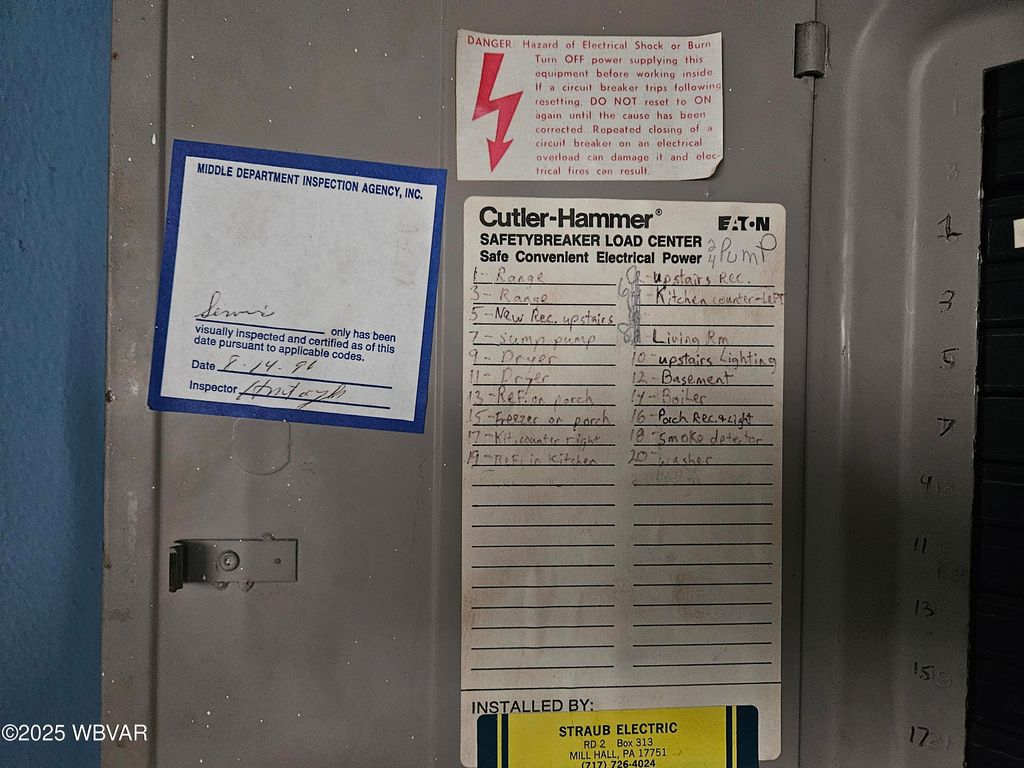 DANGER: Hazard of Electrical Shock or Burn
Turn OFF power supplying this
equipment before working inside.
If a circuit breaker trips following
resetting, DO NOT reset to ON
again until the cause has been
corrected. Repeated closing of a
circuit breaker on an electrical
overload can damage it and elec-
trical fires can result.
MIDDLE DEPARTMENT INSPECTION AGENCY, INC.
only has been
visually inspected and certified as of this
date pursuant to applicable codes.
Date
Inspector
Cutler-Hammer®
EAT•N
SAFETYBREAKER LOAD CENTER
Safe Convenient Electrical Power
2
4 Pump
1- Range
3- Range
5- New Rec. upstairs
7- sump pump
9- Dryer
11- Dryer
13- Ref. on porch
15- Freezer on porch
17- Kit. counter right
19- Ref. in Kitchen
upstairs Rec.
6 Kitchen counter-Left
8 Living Rm.
10- upstairs Lighting
12- Basement
14- Boiler
16- Porch Rec. & Light
18- smoke detector
20- washer
INSTALLED BY:
STRAUB ELECTRIC
RD 2 Box 313
MILL HALL, PA 17751
(717) 726-4024
1
3
5
7
9
11
13
15
17
©2025 WBVAR